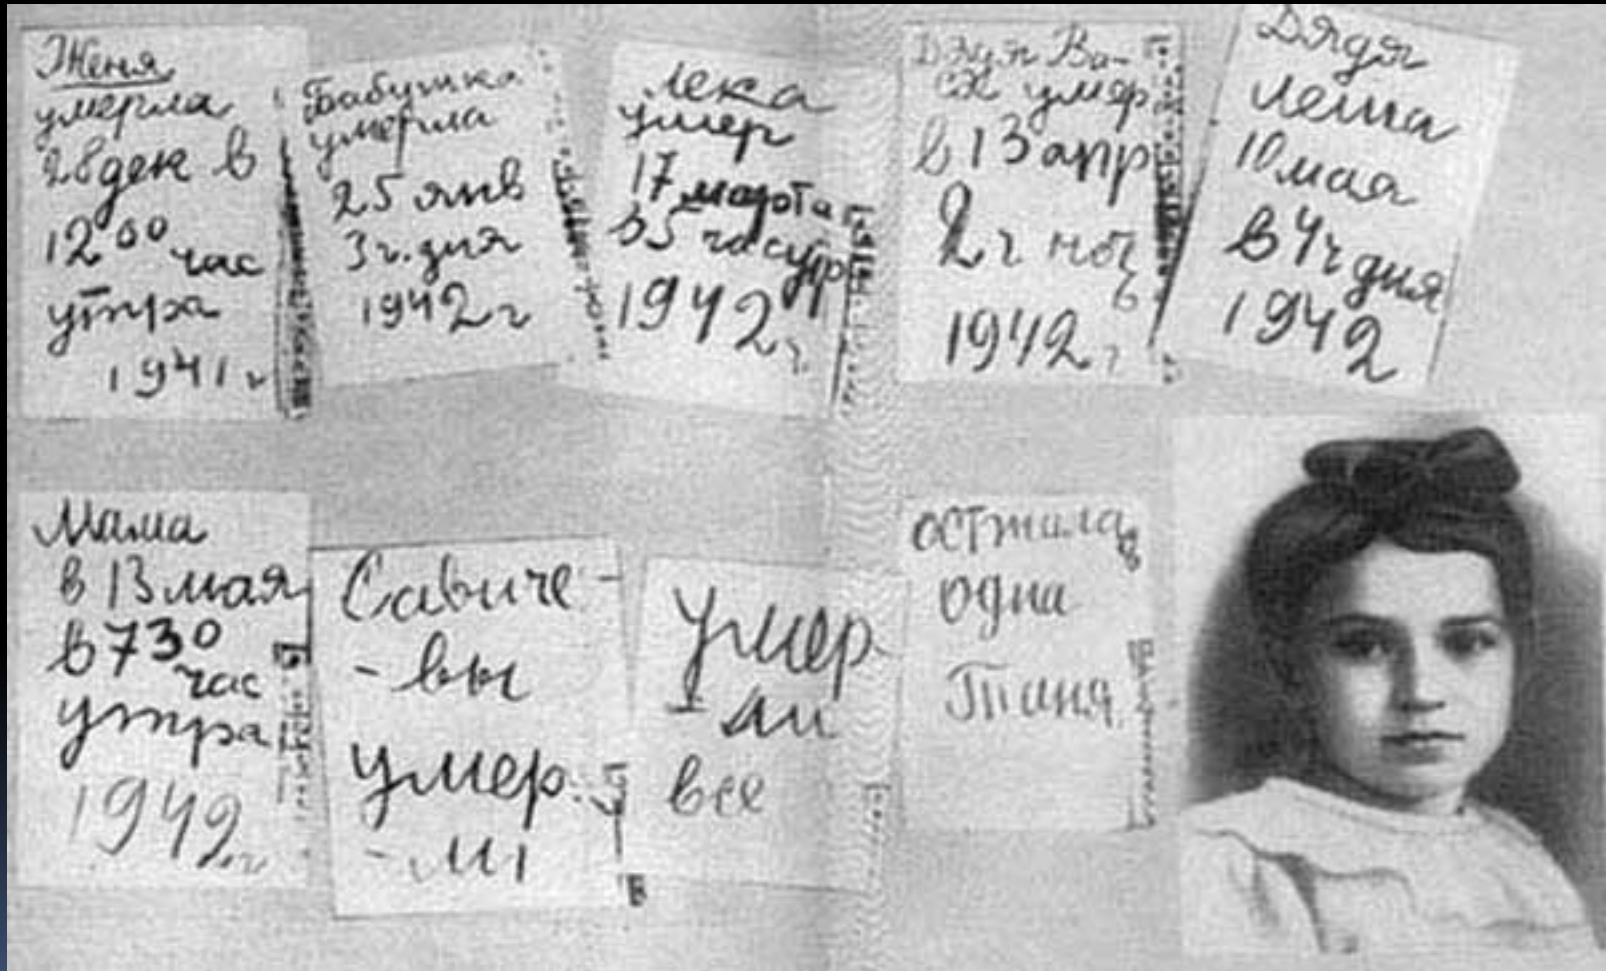 Женя
умерла
28 дек в
12 00 час
утра
1941 г
Бабушка
умерла
25 янв
3 ч. дня
1942 г
Лека
умер
17 марта
в 5 час утр
1942 г.
Дядя Ва-
ся умер
в 13 апр
2 ч ноч
1942 г
Дядя
Леша
10 мая
в 4 ч дня
1942
Мама
в 13 мая
в 7 30
час
утра
1942 г
Савиче-
-вы
умер
-ли
Умер
-ли
все
Одна
Таня